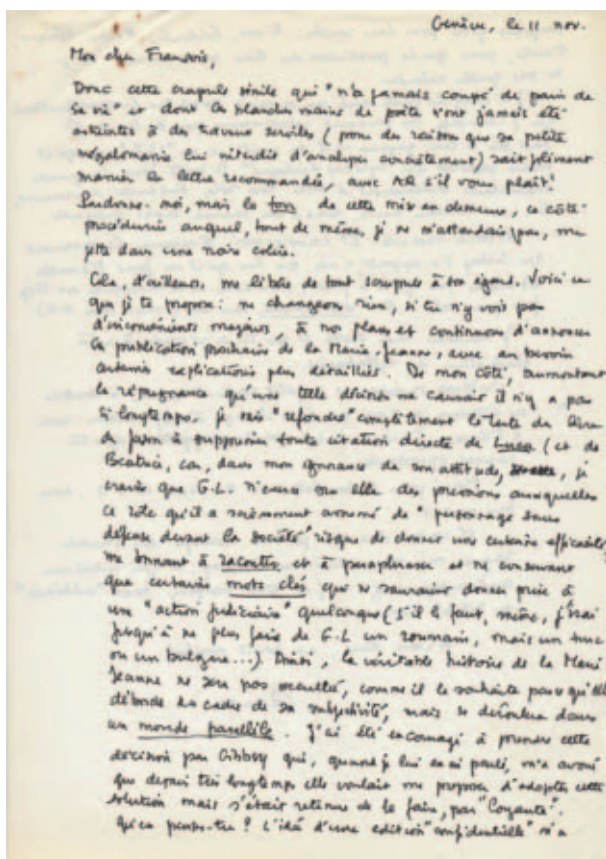 Genève, le 11 nov.
Mon cher François,
Donc cette crapule sénile qui "n'a jamais coupé de pain de
sa vie" et dont les blanches mains de poète n'ont jamais été
astreintes à des travaux serviles (pour des raisons que sa petite
mégalomanie lui interdit d'analyser concrètement) sait joliment
manier la lettre recommandée, avec AR s'il vous plaît!
Pardonne-moi, mais le ton de cette mise en demeure, ce côté
procédurier auquel, tout de même, je ne m'attendais pas, me
jette dans une noire colère.
Cela, d'ailleurs, me libère de tout scrupule à son égard. Voici ce
que je te propose : ne changeons rien, si tu n'y vois pas
d'inconvénients majeurs, à nos plans et continuons d'annoncer
la publication prochaine de la Marie-Jeanne, avec au besoin
certaines explications plus détaillées. De mon côté, surmontant
la répugnance qu'une telle décision me causait il n'y a pas
si longtemps, je vais "refondre" complètement le texte du livre
de façon à supprimer toute citation directe de Luca (et de
Béatrice, car, dans mon ignorance de son attitude, je
crains que G.L. n'exerce sur elle des pressions auxquelles
ce rôle qu'il a sciemment assumé de "personnage sans
défense devant la société" risque de donner une certaine efficacité)
me bornant à raconter et à paraphraser et ne conservant
que certains mots clés qui ne sauraient donner prise à
une "action judiciaire" quelconque (s'il le faut, même, j'irai
jusqu'à ne plus faire de G.L un roumain, mais un turc
ou un bulgare...) Ainsi, la véritable histoire de la Marie
Jeanne ne sera pas occultée, comme il le souhaite parce qu'elle
déborde du cadre de sa subjectivité, mais se déroulera dans
un monde parallèle. J'ai été encouragé à prendre cette
décision par Gibbsy qui, quand je lui en ai parlé, m'a avoué
que depuis très longtemps elle voulait me proposer d'adopter cette
solution mais s'était retenue de le faire, par "loyauté".
Qu'en penses-tu? L'idée d'une édition "confidentielle" m'a